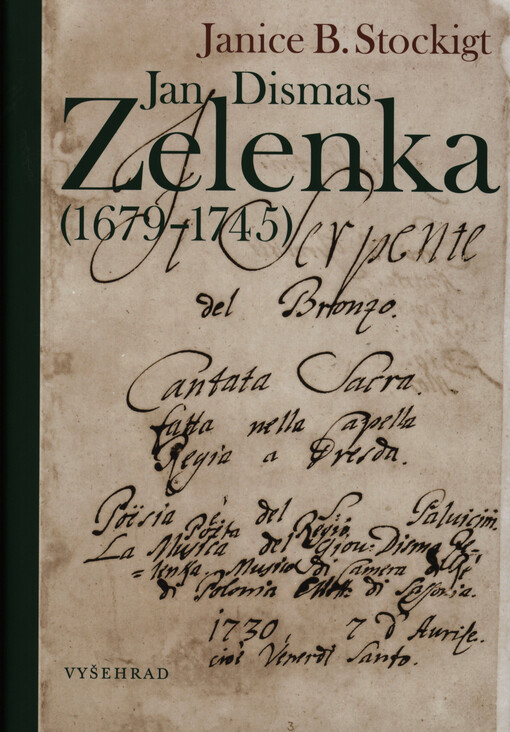 Janice B. Stockigt
Jan Dismas
Zelenka
(1679–1745)
Il Serpente
del Bronzo.
Cantata Sacra.
fatta nella Capella
Regia a Dresda.
Poësia è del S.
Poëta Regio.
La Musica del Giov: Disma Ze-
=lenka. Musico di Camera
di Polonia di Sassonia.
1730, 7 d'Aurile.
cioè Venerdì Santo.
VYŠEHRAD
3